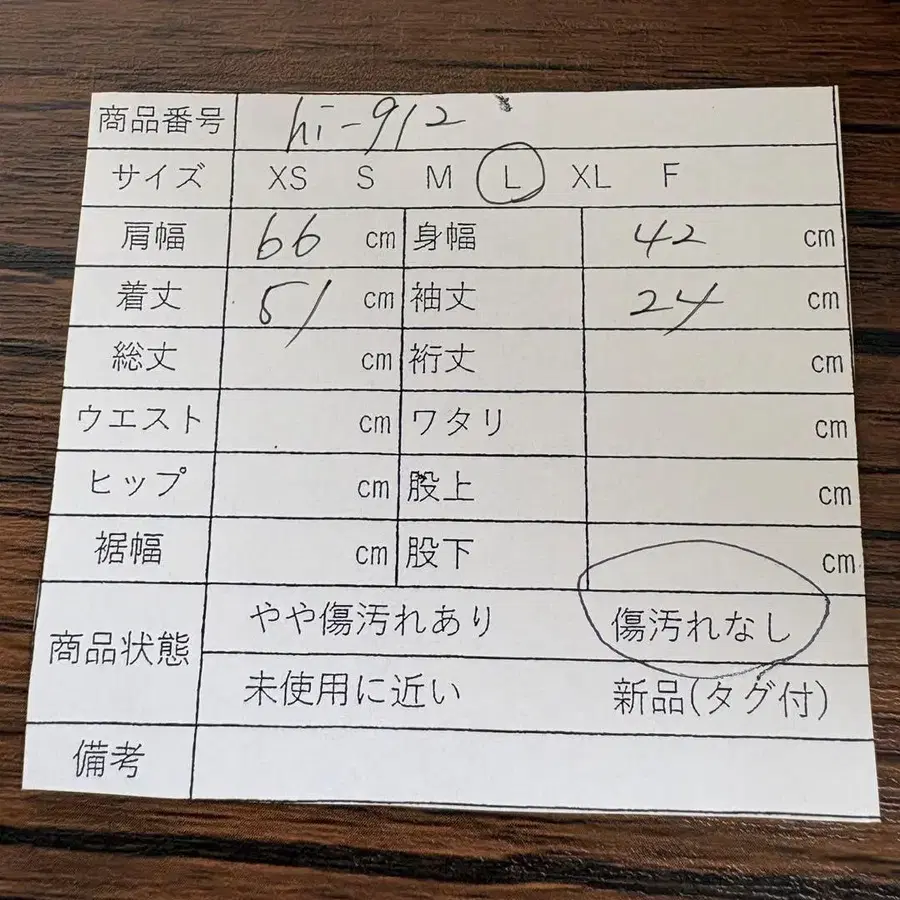 商品番号 hi-912
サイズ XS S M L XL F
肩幅 66 cm 身幅 42 cm
着丈 51 cm 袖丈 24 cm
総丈 cm 裄丈 cm
ウエスト cm ワタリ cm
ヒップ cm 股上 cm
裾幅 cm 股下 cm
商品状態 やや傷汚れあり 傷汚れなし
未使用に近い 新品(タグ付)
備考